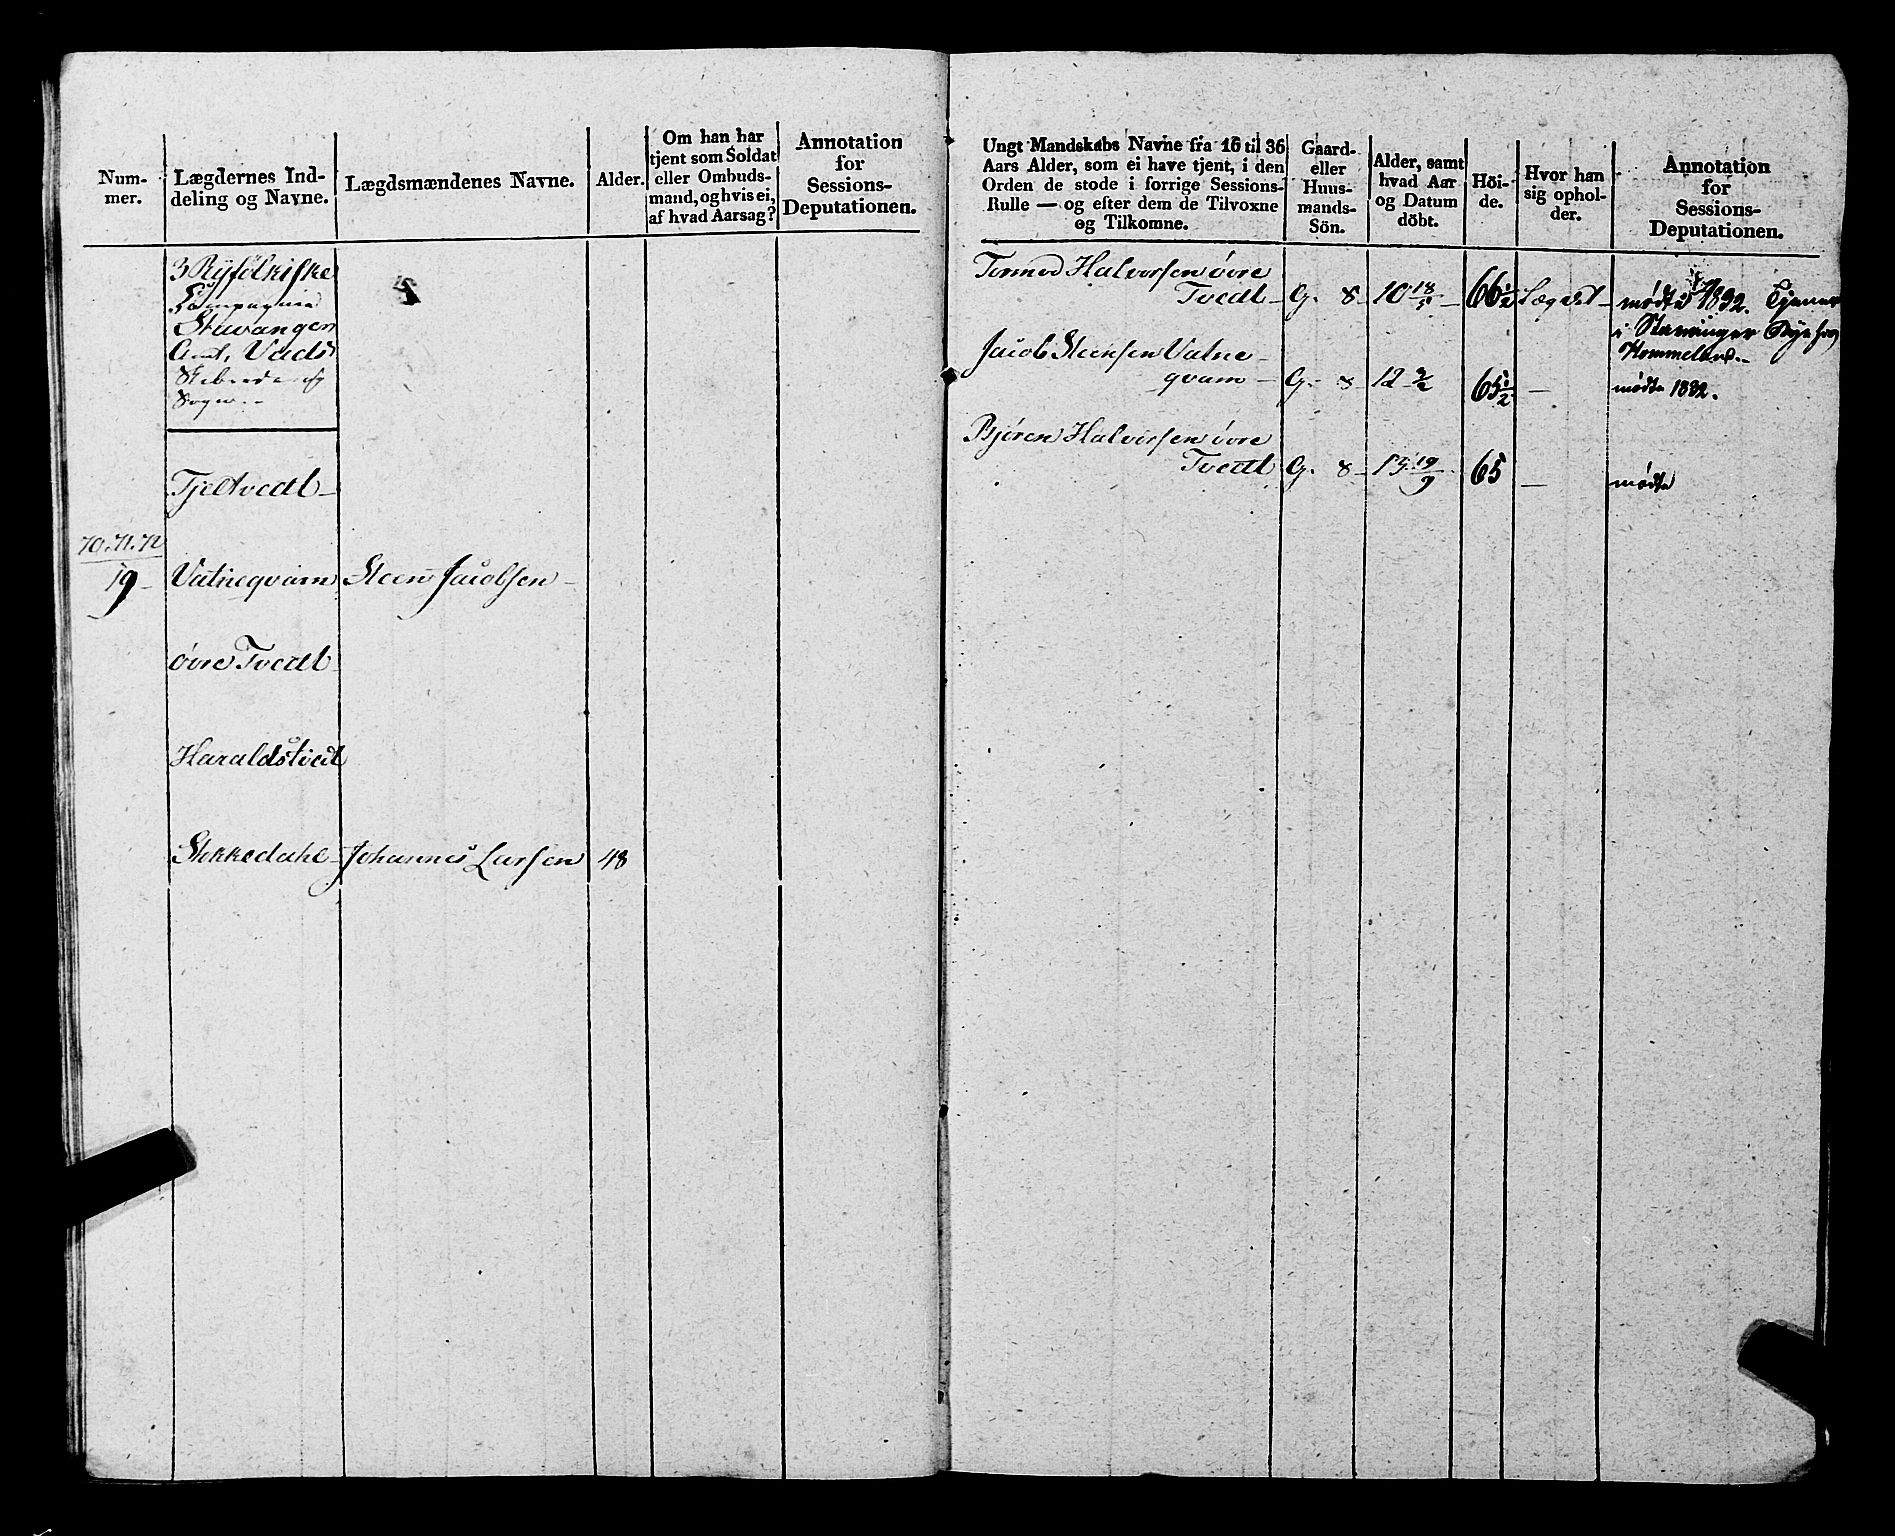 Num-
mer.
Lægdernes Ind-
deling og Navne.
Lægdsmændenes Navne.
Alder.
Om han har
tjent som Soldat
eller Ombuds-
mand, og hvis ei,
af hvad Aarsag?
Annotation
for
Sessions-
Deputationen.
3 Ryfölkiske
Compagnie
Stavanger
Amt, Vads
Skibrede og
Sogn.-
Tjeltvedt-
70.71.72
19-
Vatneqvam
Steen Jacobsen-
övre Tvedt
Haraldstvedt
Stokkedahl-
Johannes Larsen
48
Ungt Mandskabs Navne fra 16 til 36
Aars Alder, som ei have tjent, i den
Orden de stode i forrige Sessions-
Rulle — og efter dem de Tilvoxne
og Tilkomne.
Gaard-
eller
Huus-
mands-
Sön.
Alder, samt
hvad Aar
og Datum
döbt.
Höi-
de.
Hvor han
sig ophol-
der.
Annotation
for
Sessions-
Deputationen.
Tormod Halvorsen övre
Tvedt- G. 8- 10 18/5 - 66½ Lægdet- mødte 1832. Tjener
i Stavanger
Jacob Steensen Vatne-
qvam- G. 8- 12 65½ - mødte 1832.
Björen Halvorsen övre
Tvedt G. 8- 15 19/9 65 - mødte